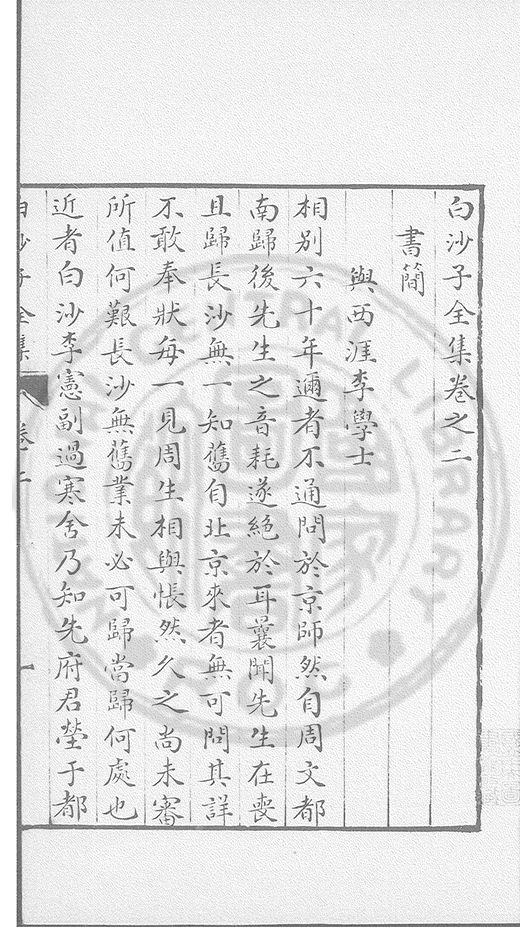 白沙子全集卷之二
書簡
與西涯李學士
相别六十年邇者不通問於京師然自周文都
南歸後先生之音耗遂絕於耳曩聞先生在喪
且歸長沙無一知舊自北京來者無可問其詳
不敢奉狀每一見周生相與悵然久之尚未審
所值何艱長沙無舊業未必可歸當歸何處也
近者白沙李憲副過寒舍乃知先府君塋于都
白沙子全集 卷二 一